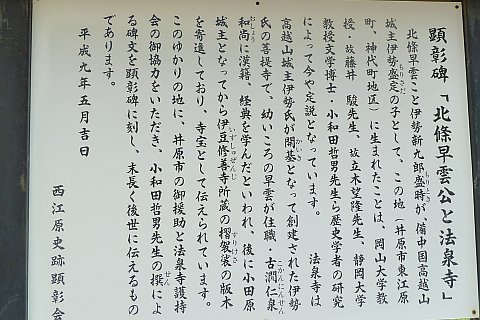 顕彰碑「北條早雲公と法泉寺」
北條早雲こと伊勢新九郎盛時が、備中国高越山
城主伊勢盛定の子として、この地(井原市東江原
町、神代町地区)に生まれたことは、岡山大学教
授・故藤井 駿先生、故立木望隆先生、静岡大学
教授文学博士・小和田哲男先生ら歴史学者の研究
によって今や定説となっています。 法泉寺は
高越山城主伊勢氏が開基となって創建された伊勢
氏の菩提寺で、幼いころの早雲が住職・古澗仁泉
和尚に漢籍、経典を学んだといわれ、後に小田原
城主となってから伊豆修善寺所蔵の摺袈裟の版木
を寄進しており、寺宝として伝えられています。
このゆかりの地に、井原市の御援助と法泉寺護持
会の御協力をいただき、小和田哲男先生の撰によ
る碑文を顕彰碑に刻し、末長く後世に伝えるもの
であります。
平成九年五月吉日
西江原史跡顕彰会